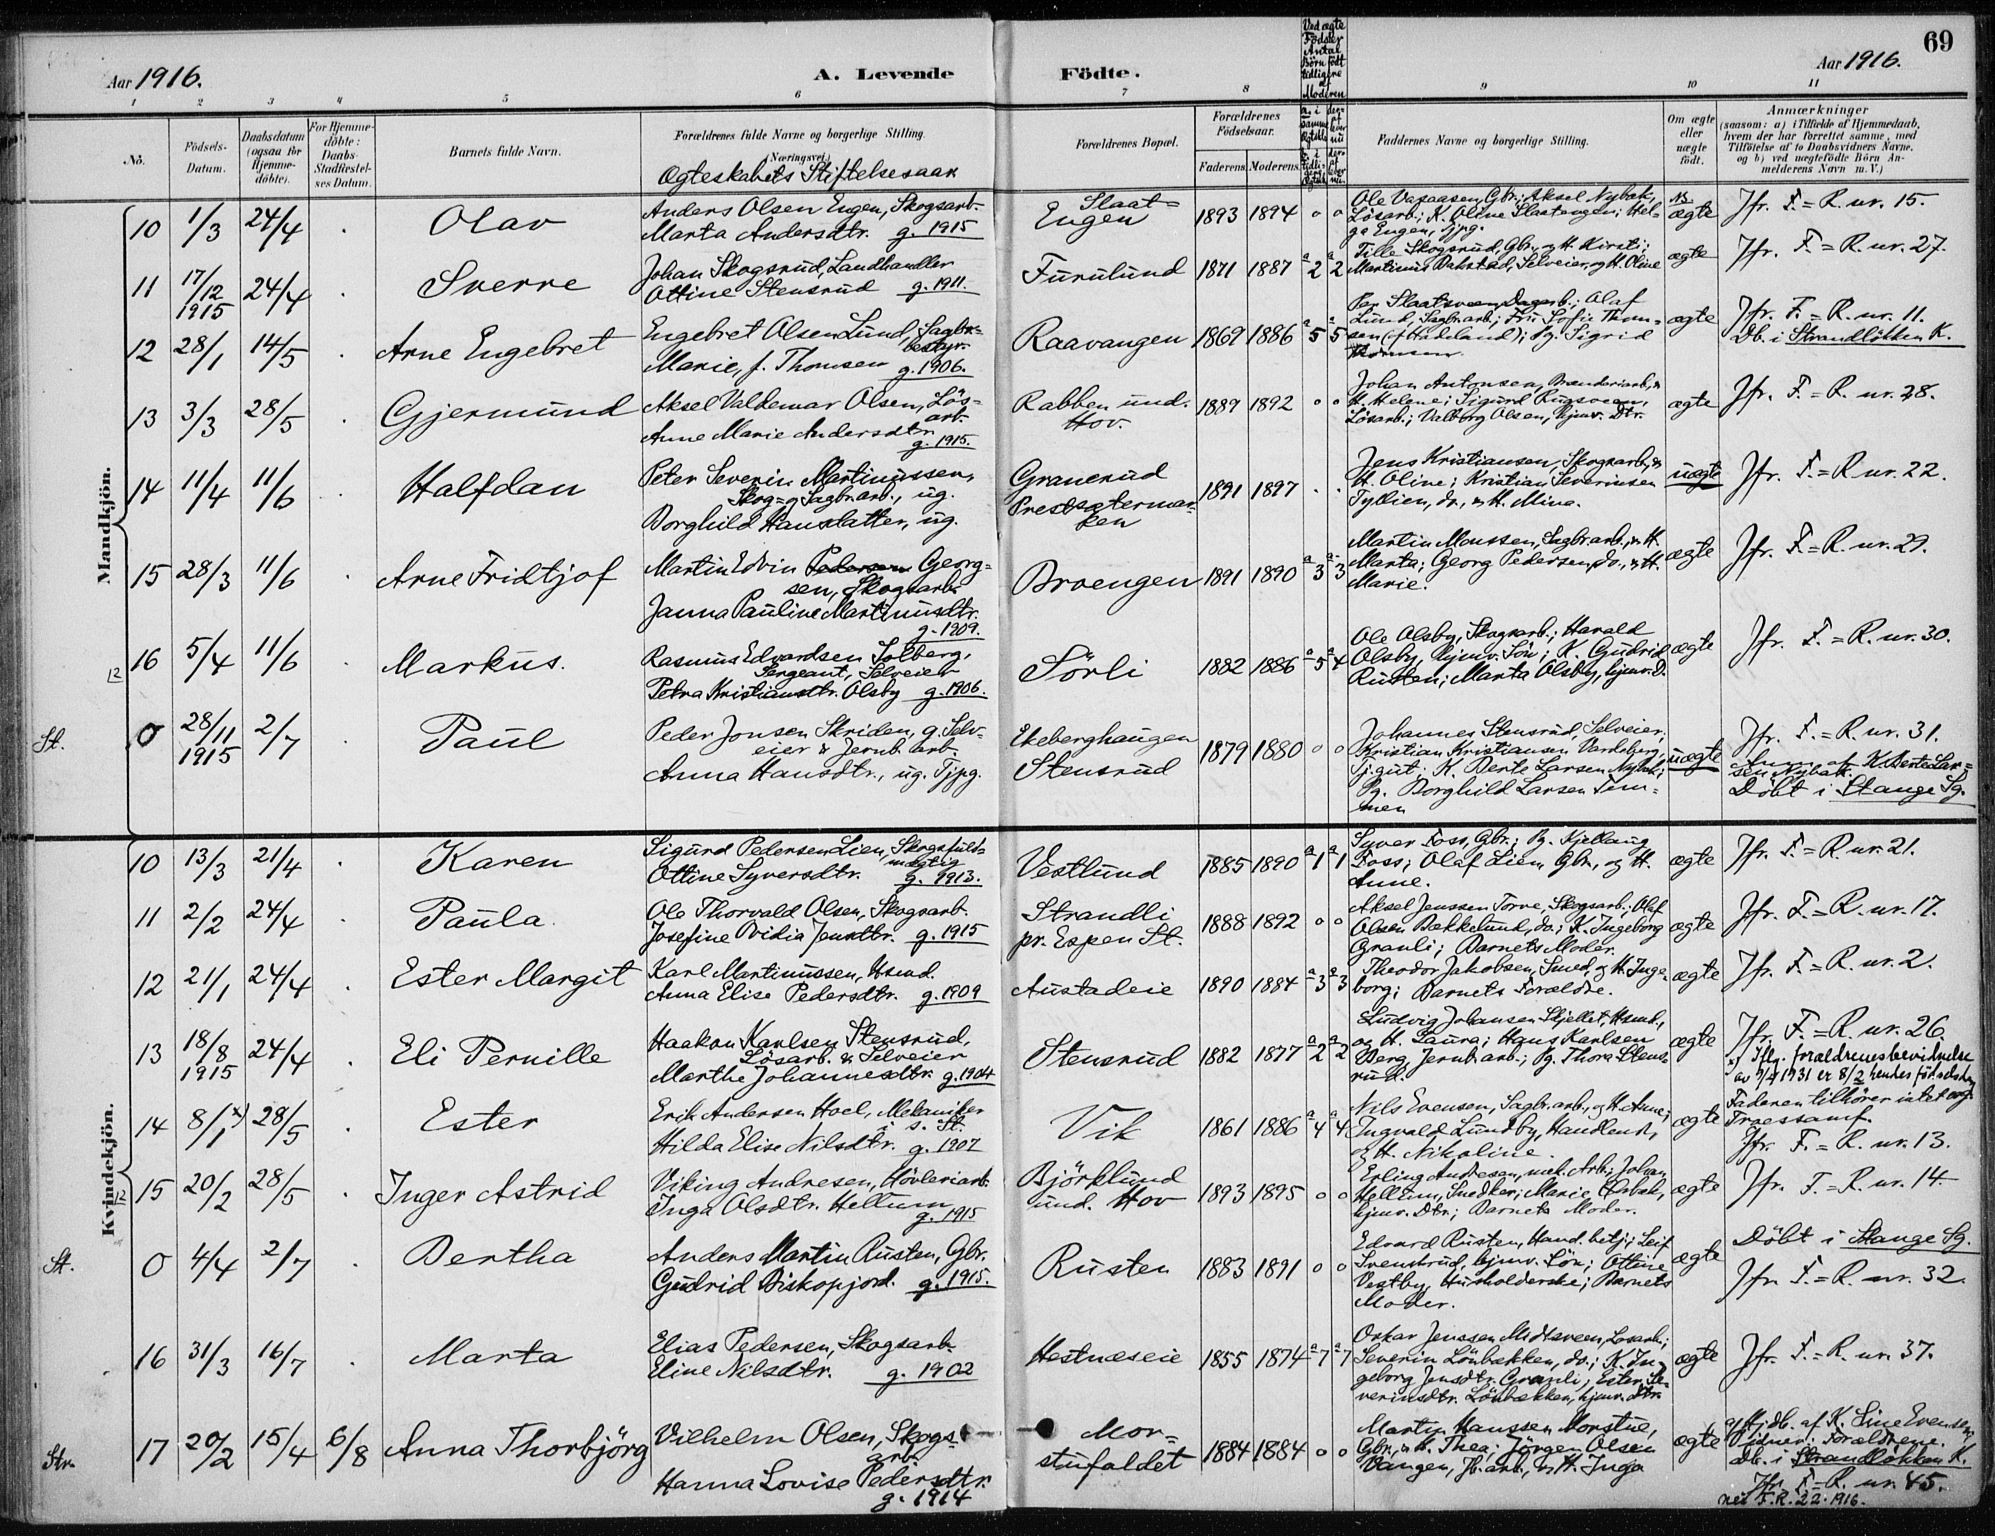 69
Aar 1916.
A. Levende Fødte.
Aar 1916.
1 2 3 4 5 6 7 8 9 10 11
Ved ægte
Födsler
Antal
Börn födt
tidligere
af
Moderen
No.
Fødsels-
Datum.
Daabsdatum
(ogsaa for
Hjemme-
døbte).
For Hjemme-
døbte:
Daabs-
Stadfæstel-
ses Datum.
Barnets fulde Navn.
Forældrenes fulde Navne og borgerlige Stilling.
(Næringsvei)
Ægteskabets Stiftelsesaar
Forældrenes Bopæl.
Forældrenes
Fødselsaar.
Faderens. Moderens.
Faddernes Navne og borgerlige Stilling.
Om ægte
eller
uægte
født.
Anmærkninger
(saasom: a) i Tilfælde af Hjemmedaab,
hvem der har forrettet samme, med
Tilføielse af to Daabsvidners Navne,
og b) ved uægtefødte Børn An-
melderens Navn m. V.)
Mandkjön.
10 1/3 24/4 Olav
Anders Olsen Engen, Skogsarb.
Marta Andersdtr. g. 1915
Slaat-
Engen
1893 1894 0 0
Ole Vaaaasen, Gbr.; Aksel Nybak,
Lösarb.; K. Oline Slaatengen; Hel-
ga Engen, tjpg.
ægte
Jfr. F.=R. nr. 15.
11 17/12 1915 24/4 Sverre
Johan Skogsrud, Landhandler
Ottine Stensrud g. 1911.
Furulund
1871 1887 a 2 a 2
Tille Skogsrud, Gbr., og H. Kirsti;
Martinus Bakstad, Selveier, og H. Oline
ægte
Jfr. F.=R. nr. 27.
12 28/1 14/5 Arne Engebret
Engebret Olsen Lund, Sagbr.-
bestyr.
Marie, f. Thomsen g. 1906.
Raavangen
1869 1886 a 5 a 5
Slaatsveen, Dagarb.; Olaf
Lund, Sagbrarb.; Fru Sofie Thom-
sen (Hadeland); Pg. Sigrid
Thomsen
ægte
Jfr. F.=R. nr. 11.
Db. i Strandlökken K.
13 3/3 28/5 Gjermund
Aksel Valdemar Olsen, Lös-
arb.
Anne Marie Andersdtr.
g. 1915.
Rabben und.
Hov.
1889 1892 0 0
Johan Antonsen, Brænderiarb., &
H. Helene; Sigurd Rugsveen,
Lösarb.; Valborg Olsen, hjmv. Dtr.
ægte
Jfr. F.=R. nr. 28.
14 11/4 11/6 Halfdan
Peter Severin Martinussen,
Skog- og Sagbr.arb., ug.
Borghild Hanslatter, ug.
Granerud
Prestsætermar-
ken
1891 1897
Jens Kristiansen, Skogsarb., &
H. Oline; Kristian Severinsen
Tyllien, do., & H. Mina.
uægte
Jfr. F.=R. nr. 22.
15 28/3 11/6 Arne Fridtjof
Martin Edvin Pedersen Georg-
sen, Skogsarb.
Janna Pauline Martinusdtr.
g. 1909.
Broengen
1891 1890 a 3 a 3
Martin Monssen, Sagbrarb., & H.
Marta; Georg Pedersen, do., & H.
Marie.
ægte
Jfr. F.=R. nr. 29.
12
16 5/4 11/6 Markus.
Rasmus Edvardsen Solberg,
Sergeant, Selveier
Petra Kristiansdtr. Olsby g. 1906.
Sörli
1882 1886 a 5 a 4
Ole Olsby, Skogsarb.; Harald
Olsby, hjmv. Sön; K. Gudrid
Rusten; Marta Olsby, hjmv. D.
ægte
Jfr. F.=R. nr. 30.
St. 0 28/11 1915 2/7 Paul
Peder Jonsen Skriden, g. Selv-
eier & Jernb.arb.
Anna Hansdtr., ug. Tjpg.
Ekeberghaugen
Stensrud
1879 1880 0 0
Johannes Stensrud, Selveier;
Kristian Kristiansen Vardeberg,
Tjgut; K. Berte Larsen Nybak;
Pg. Borghild Larsen Tem-
men
uægte
Jfr. F.=R. nr. 31.
Anm. af K. Berte Lar-
sen Nybak.
Döbt i Stange Sg.
Kvindekjön.
10 13/3 21/4 Karen
Sigurd Pedersen Lien, Skogsfuld-
mægtig
Ottine Syversdtr. g. 1913.
Vestlund
1885 1890 a 1 a 1
Syver Foss, Gbr.; Pg. Kjellaug
Foss; Olaf Lien, Gbr., og H.
Anne.
ægte
Jfr. F.=R. nr. 21.
11 2/2 24/4 Paula.
Ole Thorvald Olsen, Skogsarb.
Josefine Ovidia Jensdtr. g. 1915
Strandli
pr. Espen St.
1888 1892 0 0
Aksel Jenssen Torve, Skogsarb.; Olaf
Olsen Bakkelund, do.; K. Ingeborg
Granli; Barnets Moder.
ægte
Jfr. F.=R. nr. 17.
12 21/1 24/4 Ester Margit
Karl Martinussen, Hsmd.
Anna Elise Pedersdtr. g. 1909
Austadeie
1890 1884 a 3 a 3
Theodor Jakobsen, Smed, og H. Inge-
borg; Barnets Forældre.
ægte
Jfr. F.=R. nr. 2.
13 18/8 1915 24/4 Eli Pernille
Haakon Karlsen Stensrud,
Lösarb. & Selveier
Marthe Johannesdtr. g. 1904
Stensrud
1882 1877 a 2 a 2
Ludvig Johansen Skjellet, Hsmd.,
og H. Laura; Hans Karlsen
Berg, Jernb.arb.; Pg. Thora Stens-
rud.
ægte
Jfr. F.=R. nr. 26.
x) Iflg. forældrenes bevidnelse
av 9/4 1931 er 8/2 hendes födselsdag
14 8/1 x) 28/5 Ester
Erik Andersen Hoel, Mekaniker
i s. St.
Hilda Elise Nilsdtr. g. 1907
Vik
1861 1886 a 4 a 4
Nils Evensen, Sagbr.arb., og H. Anne;
Ingvald Lundby, Handlende,
og H. Nikoline.
ægte
Faderen tilhörer intet ang.
Troessamf.
Jfr. F.=R. nr. 13.
12
15 20/2 28/5 Inger Astrid
Viking Andresen, Hövleriarb.
Inga Olsdtr. Hellum
g. 1915
Björklund
und. Hov
1893 1895 0 0
Erling Andresen, mek. Arb.; Johan
Hellum, Snedker; Marie
hjmv. Dtr.; Barnets Moder.
ægte
Jfr. F.=R. nr. 14.
St. 0 4/4 2/7 Bertha
Anders Martin Rusten, Gbr.
Gudrid Biskopjord. g. 1915.
Rusten
1883 1891 0 0
Edvard Rusten, Hand.betj.; Leif
Svenstrud, hjmv. Sön; Ottine
Vestby, Husholderske; Barnets
Moder.
ægte
Döbt i Stange Sg.
Jfr. F.=R. nr. 32.
16 31/3 16/7 Marta
Elias Pedersen, Skogsarb.
Eline Nilsdtr. g. 1902
Hestnæseie
1855 1874 a 7 a 7
Oskar Jenssen Midtsveen, Lösarb.;
Severin Lönbækken, do.; K. In-
geborg Jensdtr. Granli; Ester Se-
verinsdtr. Lönbækken, hjmv. dtr.
ægte
Jfr. F.=R. nr. 37.
Str. 17 20/2 15/4 6/8 Anna Thorbjörg
Vilhelm Olsen, Skogs-
arb.
Hanna Lovise Pedersdtr.
g. 1914
Mor-
stufaldet
1884 1884 0 0
Martin Hanssen Morstue,
Gbr., & H. Thea; Jörgen Olsen
Vangen, Jb.arb., og H. Inga
ægte
a) Hjdb. af K. Line Evensen,
Vidner: Forældrene.
db. i Strandlökken K.
Jfr. F.=R. nr. 45.
nei F.R. 22. 1916.